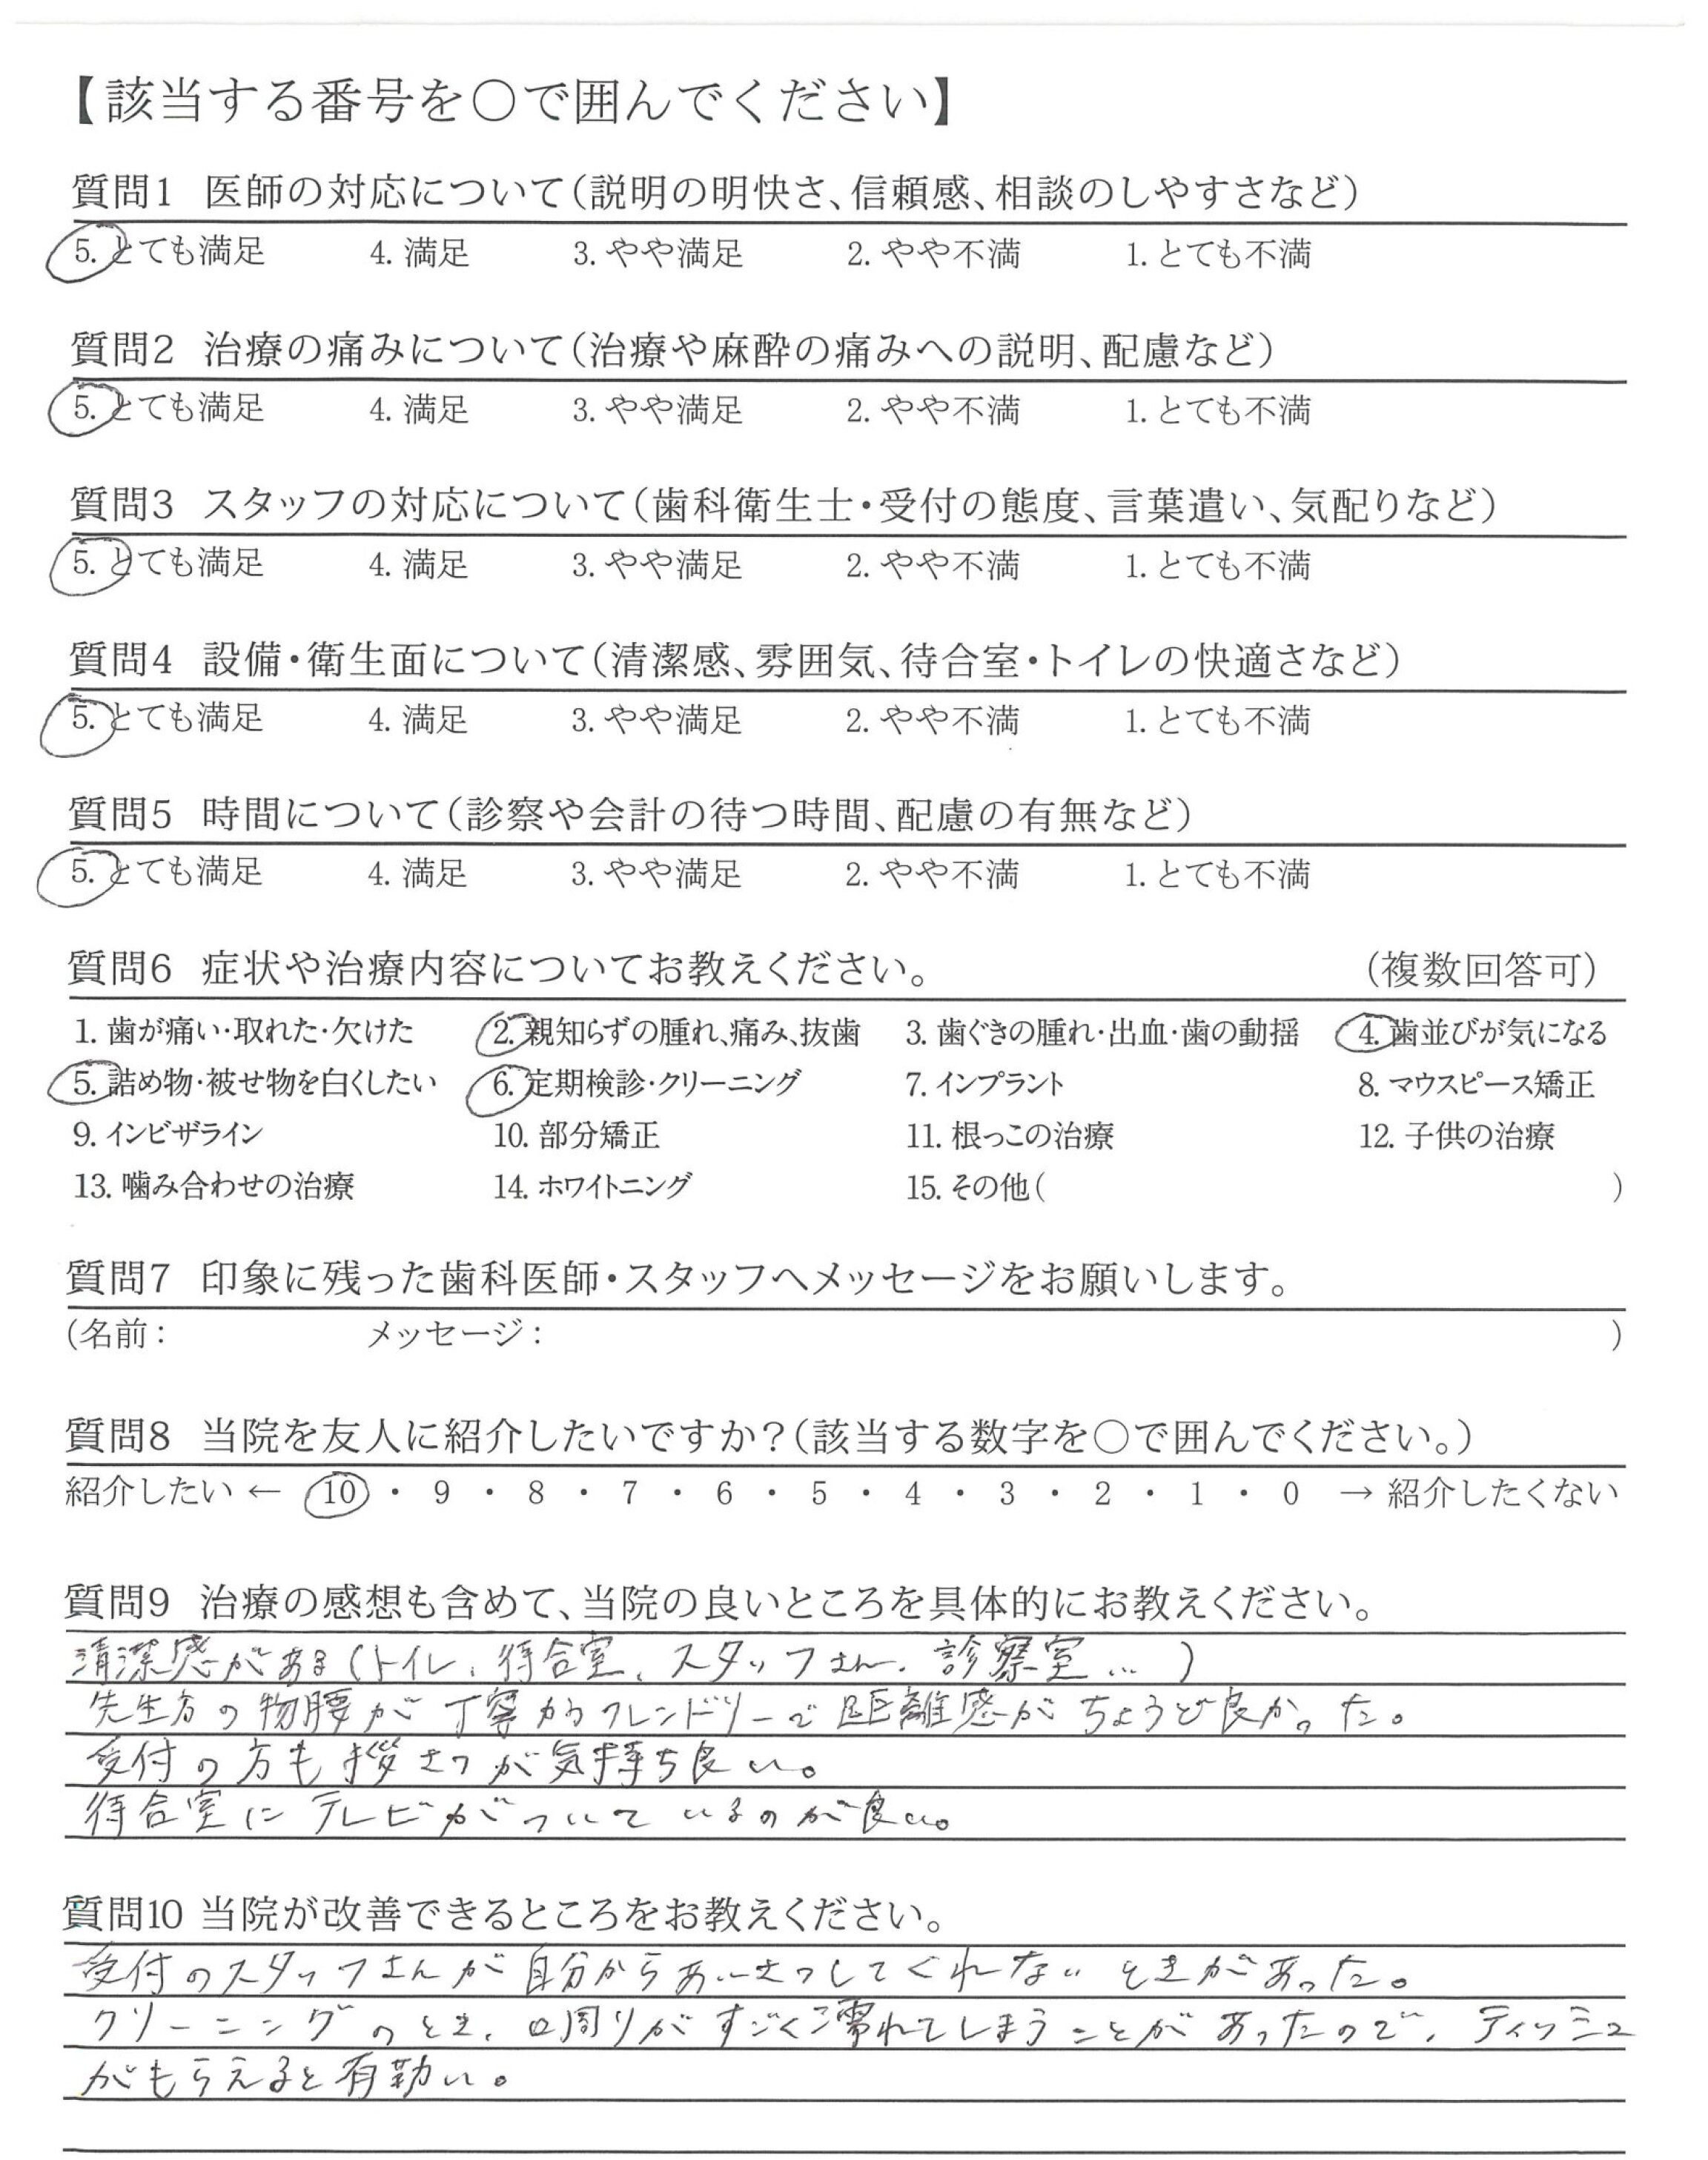 【該当する番号を○で囲んでください】
質問1 医師の対応について(説明の明快さ、信頼感、相談のしやすさなど)
5. とても満足 4. 満足 3. やや満足 2. やや不満 1. とても不満
質問2 治療の痛みについて(治療や麻酔の痛みへの説明、配慮など)
5. とても満足 4. 満足 3. やや満足 2. やや不満 1. とても不満
質問3 スタッフの対応について(歯科衛生士・受付の態度、言葉遣い、気配りなど)
5. とても満足 4. 満足 3. やや満足 2. やや不満 1. とても不満
質問4 設備・衛生面について(清潔感、雰囲気、待合室・トイレの快適さなど)
5. とても満足 4. 満足 3. やや満足 2. やや不満 1. とても不満
質問5 時間について(診察や会計の待つ時間、配慮の有無など)
5. とても満足 4. 満足 3. やや満足 2. やや不満 1. とても不満
質問6 症状や治療内容についてお教えください。 (複数回答可)
1. 歯が痛い・取れた・欠けた 2. 親知らずの腫れ、痛み、抜歯 3. 歯ぐきの腫れ・出血・歯の動揺 4. 歯並びが気になる
5. 詰め物・被せ物を白くしたい 6. 定期検診・クリーニング 7. インプラント 8. マウスピース矯正
9. インビザライン 10. 部分矯正 11. 根っこの治療 12. 子供の治療
13. 噛み合わせの治療 14. ホワイトニング 15. その他( )
質問7 印象に残った歯科医師・スタッフへメッセージをお願いします。
(名前: メッセージ: )
質問8 当院を友人に紹介したいですか?(該当する数字を○で囲んでください。)
紹介したい ← 10 ・ 9 ・ 8 ・ 7 ・ 6 ・ 5 ・ 4 ・ 3 ・ 2 ・ 1 ・ 0 → 紹介したくない
質問9 治療の感想も含めて、当院の良いところを具体的にお教えください。
清潔感がある(トイレ、待合室、スタッフさん、診察室… )
先生方の物腰が丁寧かつフレンドリーで距離感がちょうど良かった。
受付の方も挨さつが気持ち良い。
待合室にテレビがついているのが良い。
質問10 当院が改善できるところをお教えください。
受付のスタッフさんが自分からあいさつしてくれないときがあった。
クリーニングのとき、口周りがすごく濡れてしまうことがあったので、ティッシュ
がもらえると有勤い。